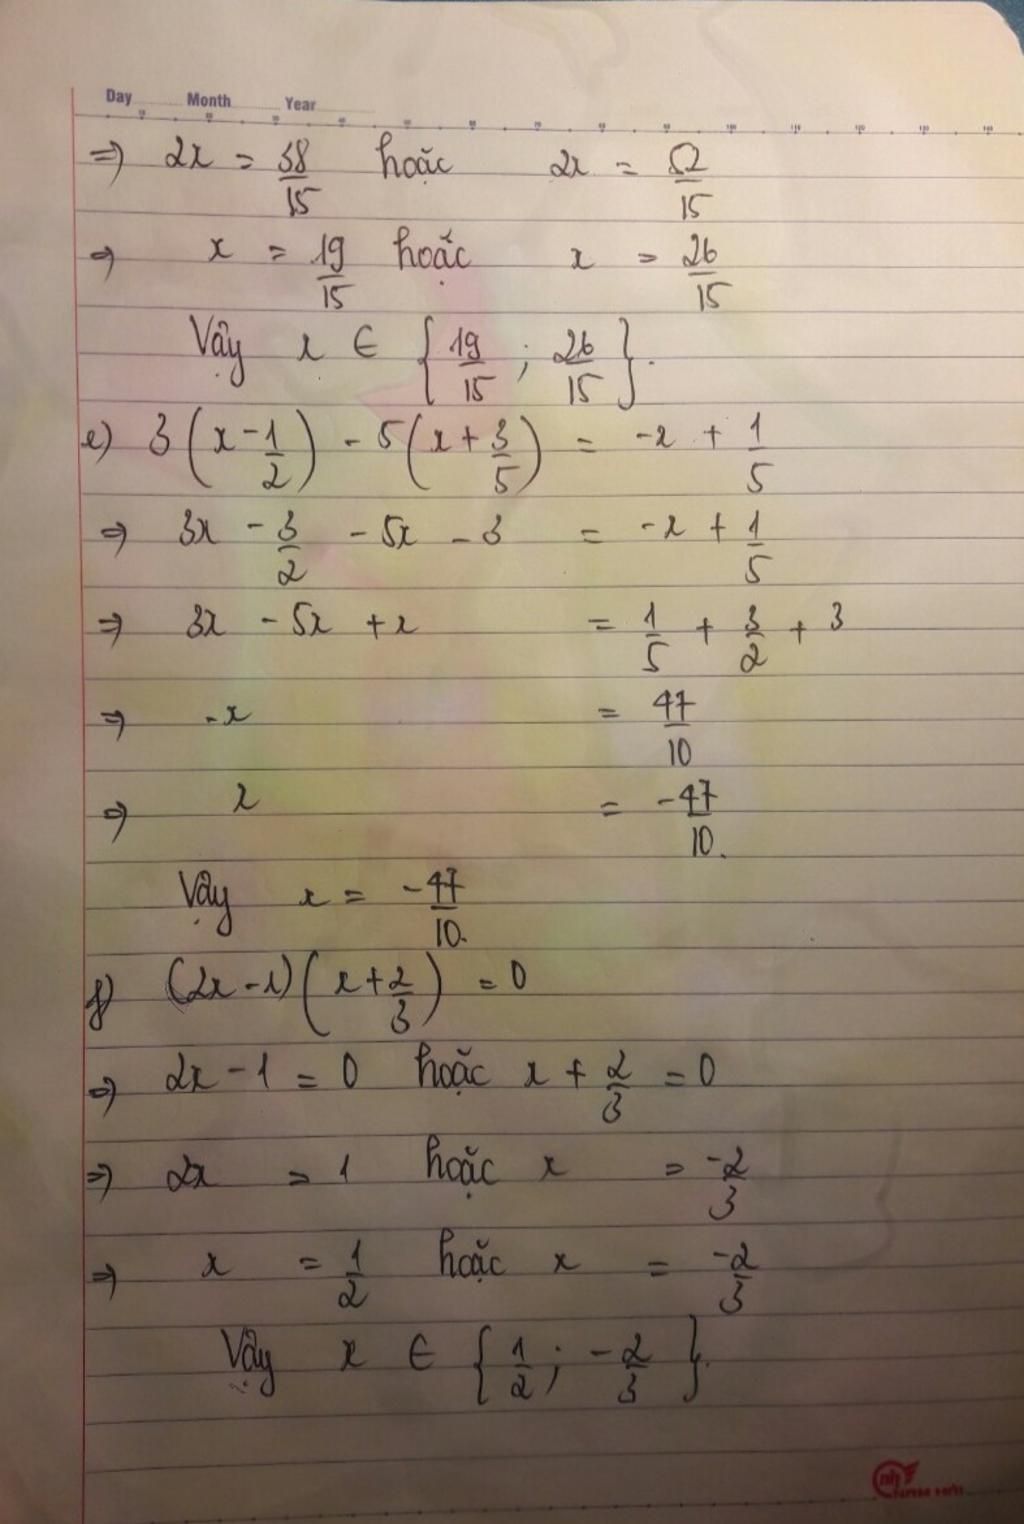 Day Month Year
=> 2x = 38/15 hoặc 2x = 52/15
=> x = 19/15 hoặc x = 26/15
Vậy x ∈ {19/15 ; 26/15}.
e) 3(x - 1/2) - 5(x + 3/5) = -x + 1/5
=> 3x - 3/2 - 5x - 3 = -x + 1/5
=> 3x - 5x + x = 1/5 + 3/2 + 3
=> -x = 47/10
=> x = -47/10.
Vậy x = -47/10.
f) (2x - 1)(x + 2/3) = 0
=> 2x - 1 = 0 hoặc x + 2/3 = 0
=> 2x = 1 hoặc x = -2/3
=> x = 1/2 hoặc x = -2/3
Vậy x ∈ {1/2 ; -2/3}.
nh